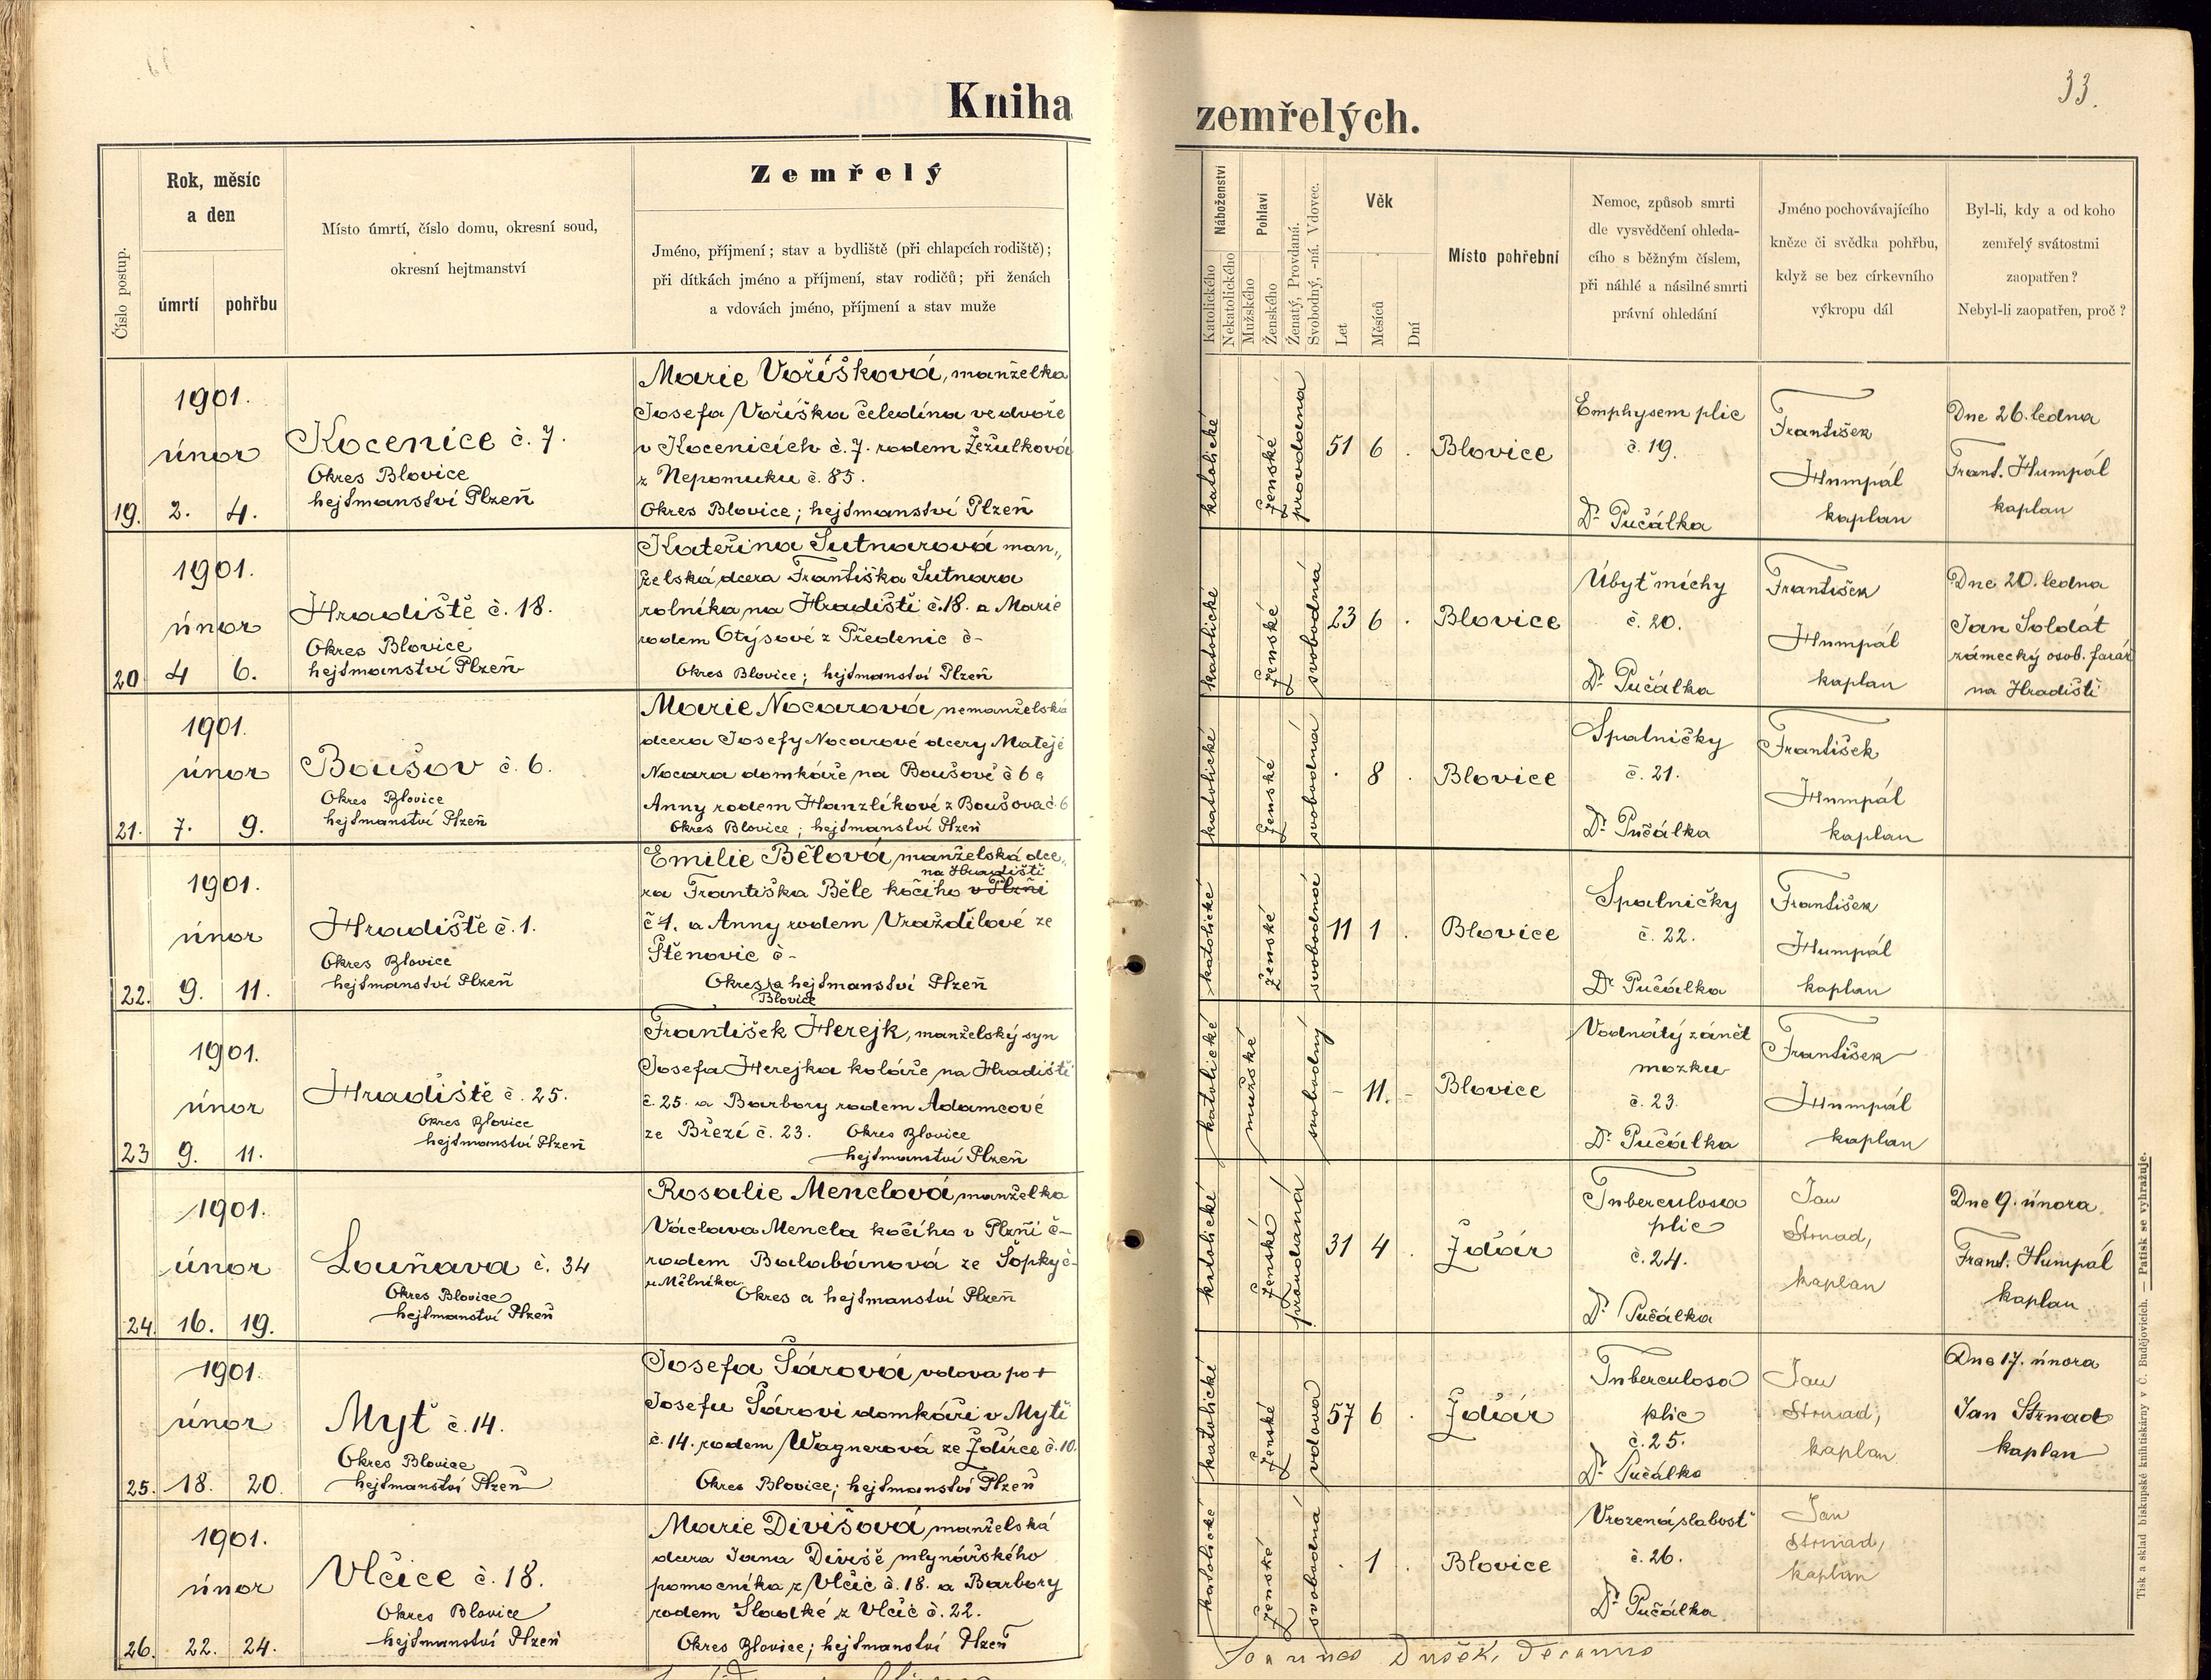 33.
Kniha zemřelých.
Číslo postup.
Rok, měsíc
a den
úmrtí
pohřbu
Místo úmrtí, číslo domu, okresní soud,
okresní hejtmanství
Zemřelý
Jméno, příjmení; stav a bydliště (při chlapcích rodiště);
při dítkách jméno a příjmení, stav rodičů; při ženách
a vdovách jméno, příjmení a stav muže
Náboženství
Katolického
Nekatolického
Pohlaví
Mužského
Ženského
Ženatý, Provdaná.
Svobodný, -ná. Vdovec.
Věk
Let
Měsíců
Dní
Místo pohřební
Nemoc, způsob smrti
dle vysvědčení ohleda-
cího s běžným číslem,
při náhlé a násilné smrti
právní ohledání
Jméno pochovávajícího
kněze či svědka pohřbu,
když se bez církevního
výkropu dál
Byl-li, kdy a od koho
zemřelý svátostmi
zaopatřen?
Nebyl-li zaopatřen, proč?
19.
1901.
únor
2. 4.
Kocenice č. 7.
Okres Blovice
hejtmanství Plzeň
Marie Voříšková, manželka
Josefa Voříška čeledína ve dvoře
v Kocenicích č. 7. rodem Žežulková
z Nepomuku č. 85.
Okres Blovice; hejtmanství Plzeň
katolické
ženské
provdaná
51 6 .
Blovice
Emphysem plic
č. 19.
Dr. Pučálka
František
Humpál
kaplan
Dne 26. ledna
Frant. Humpál
kaplan
20
1901.
únor
4 6.
Hradiště č. 18.
Okres Blovice
hejtmanství Plzeň
Kateřina Sutnarová man„
želská dcera Františka Sutnara
rolníka na Hradišti č. 18. a Marie
rodem Otýsové z Předenic č-
Okres Blovice; hejtmanství Plzeň
katolické
ženské
svobodná
23 6 .
Blovice
Úbyť míchy
č. 20.
Dr. Pučálka
František
Humpál
kaplan
Dne 20. ledna
Jan Soldát
zámecký osob. farář
na Hradišti
21.
1901.
únor
7. 9.
Boušov č. 6.
Okres Blovice
hejtmanství Plzeň
Marie Nocarová nemanželská
dcera Josefy Nocarové dcery Matěje
Nocara domkáře na Boušově č 6 a
Anny rodem Hanzlíkové z Boušova č. 6
Okres Blovice; hejtmanství Plzeň
katolické
ženské
svobodná
. 8 .
Blovice
Spalničky
č. 21.
Dr. Pučálka
František
Humpál
kaplan
22.
1901.
únor
9. 11.
Hradiště č. 1.
Okres Blovice
hejtmanství Plzeň
Emilie Bělová, manželská dce„
na Hradišti
ra Františka Běle kočího v Plzni
č 1. a Anny rodem Vraždilové ze
Štěnovic č-
Okres a hejtmanství Plzeň
Blovice
katolické
ženské
svobodná
11 1 .
Blovice
Spalničky
č. 22.
Dr. Pučálka
František
Humpál
kaplan
23
1901.
únor
9. 11.
Hradiště č. 25.
Okres Blovice
hejtmanství Plzeň
František Herejk, manželský syn
Josefa Herejka koláře na Hradišti
č. 25. a Barbory rodem Adamcové
ze Březí č. 23. Okres Blovice
hejtmanství Plzeň
katolické
mužské
svobodný
- 11. -
Blovice
Vodnatý zánět
mozku
č. 23.
Dr. Pučálka
František
Humpál
kaplan
24.
1901.
únor
16. 19.
Louňava č. 34
Okres Blovice
hejtmanství Plzeň
Rosalie Menclová manželka
Václava Mencla kočího v Plzni č-
rodem Balabánová ze Šopky č-
u Mělníka
Okres a hejtmanství Plzeň
katolické
ženské
provdaná
31 4 .
Ždár
Tuberculosa
plic
č. 24.
Dr. Pučálka
Jan
Strnad,
kaplan
Dne 9. února
Frant. Humpál
kaplan
25.
1901.
únor
18. 20.
Myť č. 14.
Okres Blovice
hejtmanství Plzeň
Josefa Šárová, vdova po +
Josefu Šárovi domkáři v Mýtě
č. 14. rodem Wagnerová ze Ždírce č. 10.
Okres Blovice; hejtmanství Plzeň
katolické
ženské
vdova
57 6 .
Ždár
Tuberculosa
plic
č. 25.
Dr. Pučálka
Jan
Strnad,
kaplan
Dne 17. února
Jan Strnad
kaplan
26.
1901.
únor
22. 24.
Vlčice č. 18.
Okres Blovice
hejtmanství Plzeň
Marie Divišová, manželská
dcera Jana Diviše mlynářského
pomocníka z Vlčic č. 18. a Barbory
rodem Sladké z Vlčic č. 22.
Okres Blovice; hejtmanství Plzeň
katolické
ženské
svobodná
. 1 .
Blovice
Vrozená slabosť
č. 26.
Dr. Pučálka
Jan
Strnad,
kaplan
Joannes Dušek, Decanus
Tisk a sklad biskupské knihtiskárny v Č. Budějovicích. — Patisk se vyhražuje.